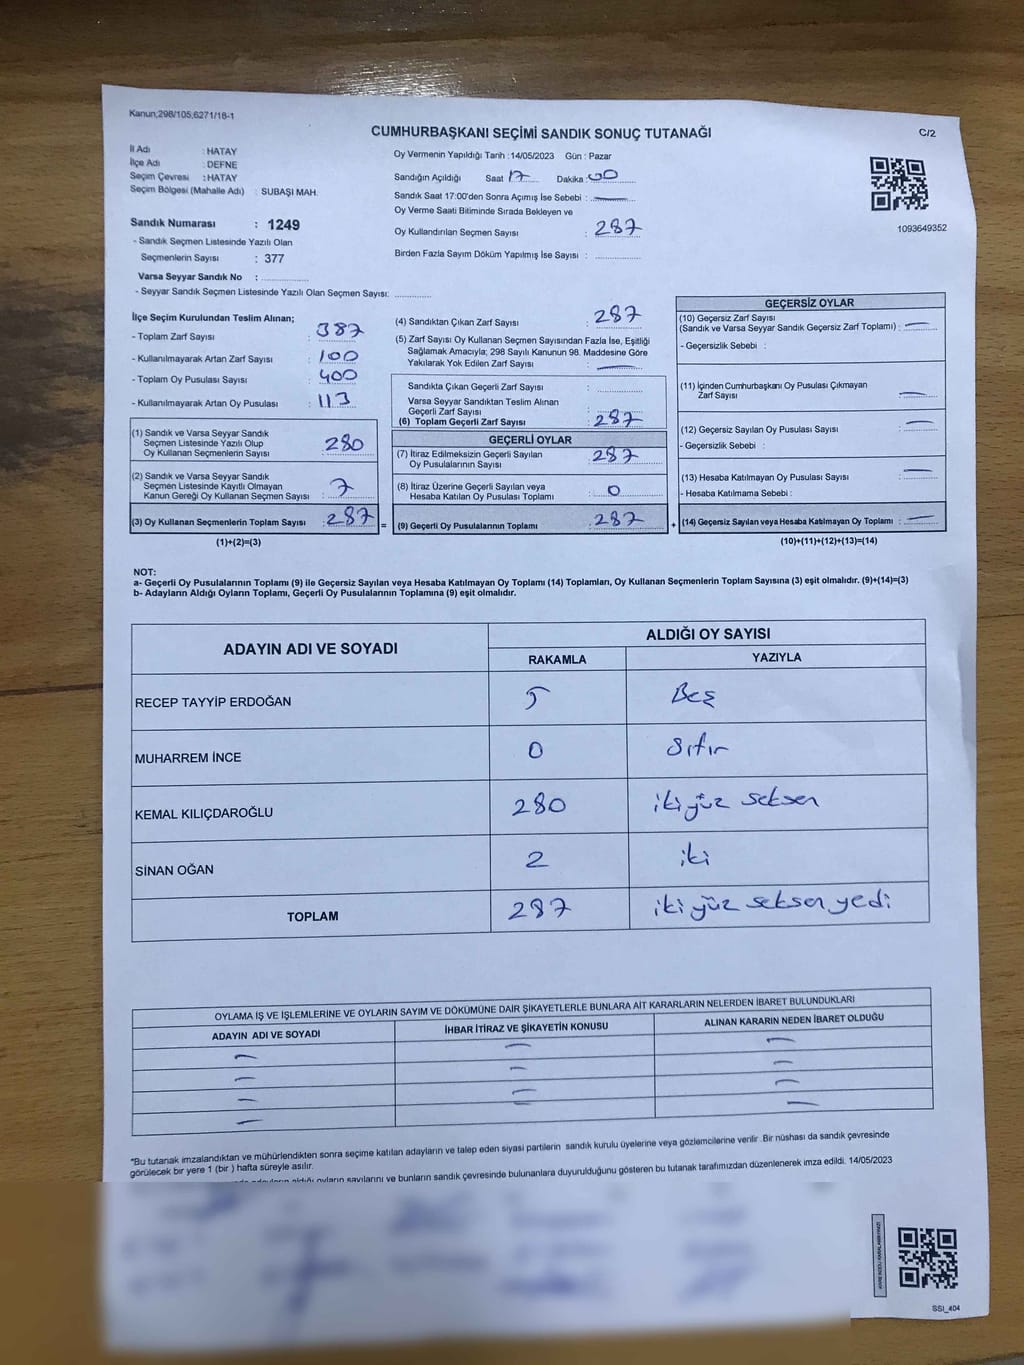 Kanun;298/105;6271/18-1
CUMHURBAŞKANI SEÇİMİ SANDIK SONUÇ TUTANAĞI
C/2
İl Adı : HATAY
İlçe Adı : DEFNE
Seçim Çevresi : HATAY
Seçim Bölgesi (Mahalle Adı) : SUBAŞI MAH.
Sandık Numarası : 1249
- Sandık Seçmen Listesinde Yazılı Olan
Seçmenlerin Sayısı : 377
Varsa Seyyar Sandık No :
- Seyyar Sandık Seçmen Listesinde Yazılı Olan Seçmen Sayısı:
Oy Vermenin Yapıldığı Tarih :14/05/2023 Gün : Pazar
Sandığın Açıldığı Saat 17 Dakika : 00
Sandık Saat 17:00'den Sonra Açımış İse Sebebi :
Oy Verme Saati Bitiminde Sırada Bekleyen ve
Oy Kullandırılan Seçmen Sayısı : 287
Birden Fazla Sayım Döküm Yapılmış İse Sayısı :
1093649352
İlçe Seçim Kurulundan Teslim Alınan;
- Toplam Zarf Sayısı : 387
- Kullanılmayarak Artan Zarf Sayısı : 100
- Toplam Oy Pusulası Sayısı : 400
- Kullanılmayarak Artan Oy Pusulası : 113
(1) Sandık ve Varsa Seyyar Sandık
Seçmen Listesinde Yazılı Olup
Oy Kullanan Seçmenlerin Sayısı : 280
(2) Sandık ve Varsa Seyyar Sandık
Seçmen Listesinde Kayıtlı Olmayan
Kanun Gereği Oy Kullanan Seçmen Sayısı : 7
(3) Oy Kullanan Seçmenlerin Toplam Sayısı : 287 =
(1)+(2)=(3)
(4) Sandıktan Çıkan Zarf Sayısı : 287
(5) Zarf Sayısı Oy Kullanan Seçmen Sayısından Fazla İse, Eşitliği
Sağlamak Amacıyla; 298 Sayılı Kanunun 98. Maddesine Göre
Yakılarak Yok Edilen Zarf Sayısı :
Sandıkta Çıkan Geçerli Zarf Sayısı :
Varsa Seyyar Sandıktan Teslim Alınan
Geçerli Zarf Sayısı :
(6) Toplam Geçerli Zarf Sayısı : 287
GEÇERLİ OYLAR
(7) İtiraz Edilmeksizin Geçerli Sayılan
Oy Pusulalarının Sayısı : 287
(8) İtiraz Üzerine Geçerli Sayılan veya
Hesaba Katılan Oy Pusulası Toplamı : 0
(9) Geçerli Oy Pusulalarının Toplamı : 287 +
GEÇERSİZ OYLAR
(10) Geçersiz Zarf Sayısı
(Sandık ve Varsa Seyyar Sandık Geçersiz Zarf Toplamı) :
- Geçersizlik Sebebi :
(11) İçinden Cumhurbaşkanı Oy Pusulası Çıkmayan
Zarf Sayısı :
(12) Geçersiz Sayılan Oy Pusulası Sayısı :
- Geçersizlik Sebebi :
(13) Hesaba Katılmayan Oy Pusulası Sayısı :
- Hesaba Katılmama Sebebi :
(14) Geçersiz Sayılan veya Hesaba Katılmayan Oy Toplamı :
(10)+(11)+(12)+(13)=(14)
NOT:
a- Geçerli Oy Pusulalarının Toplamı (9) ile Geçersiz Sayılan veya Hesaba Katılmayan Oy Toplamı (14) Toplamları, Oy Kullanan Seçmenlerin Toplam Sayısına (3) eşit olmalıdır. (9)+(14)=(3)
b- Adayların Aldığı Oyların Toplamı, Geçerli Oy Pusulalarının Toplamına (9) eşit olmalıdır.
ADAYIN ADI VE SOYADI
ALDIĞI OY SAYISI
RAKAMLA YAZIYLA
RECEP TAYYİP ERDOĞAN 5 Beş
MUHARREM İNCE 0 Sıfır
KEMAL KILIÇDAROĞLU 280 iki yüz seksen
SİNAN OĞAN 2 iki
TOPLAM 287 iki yüz seksen yedi
OYLAMA İŞ VE İŞLEMLERİNE VE OYLARIN SAYIM VE DÖKÜMÜNE DAİR ŞİKAYETLERLE BUNLARA AİT KARARLARIN NELERDEN İBARET BULUNDUKLARI
ADAYIN ADI VE SOYADI İHBAR İTİRAZ VE ŞİKAYETİN KONUSU ALINAN KARARIN NEDEN İBARET OLDUĞU
*Bu tutanak imzalandıktan ve mühürlendikten sonra seçime katılan adayların ve talep eden siyasi partilerin sandık kurulu üyelerine veya gözlemcilerine verilir. Bir nüshası da sandık çevresinde
görülecek bir yere 1 (bir ) hafta süreyle asılır.
adayların aldığı oyların sayılarını ve bunların sandık çevresinde bulunanlara duyurulduğunu gösteren bu tutanak tarafımızdan düzenlenerek imza edildi. 14/05/2023
SSI_404